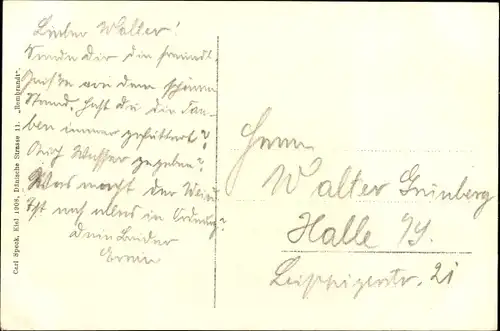 Lieber Walter!
Sende Dir die freundl.
Grüße von dem schönen
Strand. Hast du die Tau-
ben immer gefüttert?
Auch Wasser gegeben?
Was macht der
Ist noch alles in Ordnung?
Dein Bruder
Erwin
Carl Speck, Kiel 1908, Dänische Strasse 11. „Rembrandt".
Herrn
Walter Grünberg
Halle a/S.
Leipzigerstr. 21